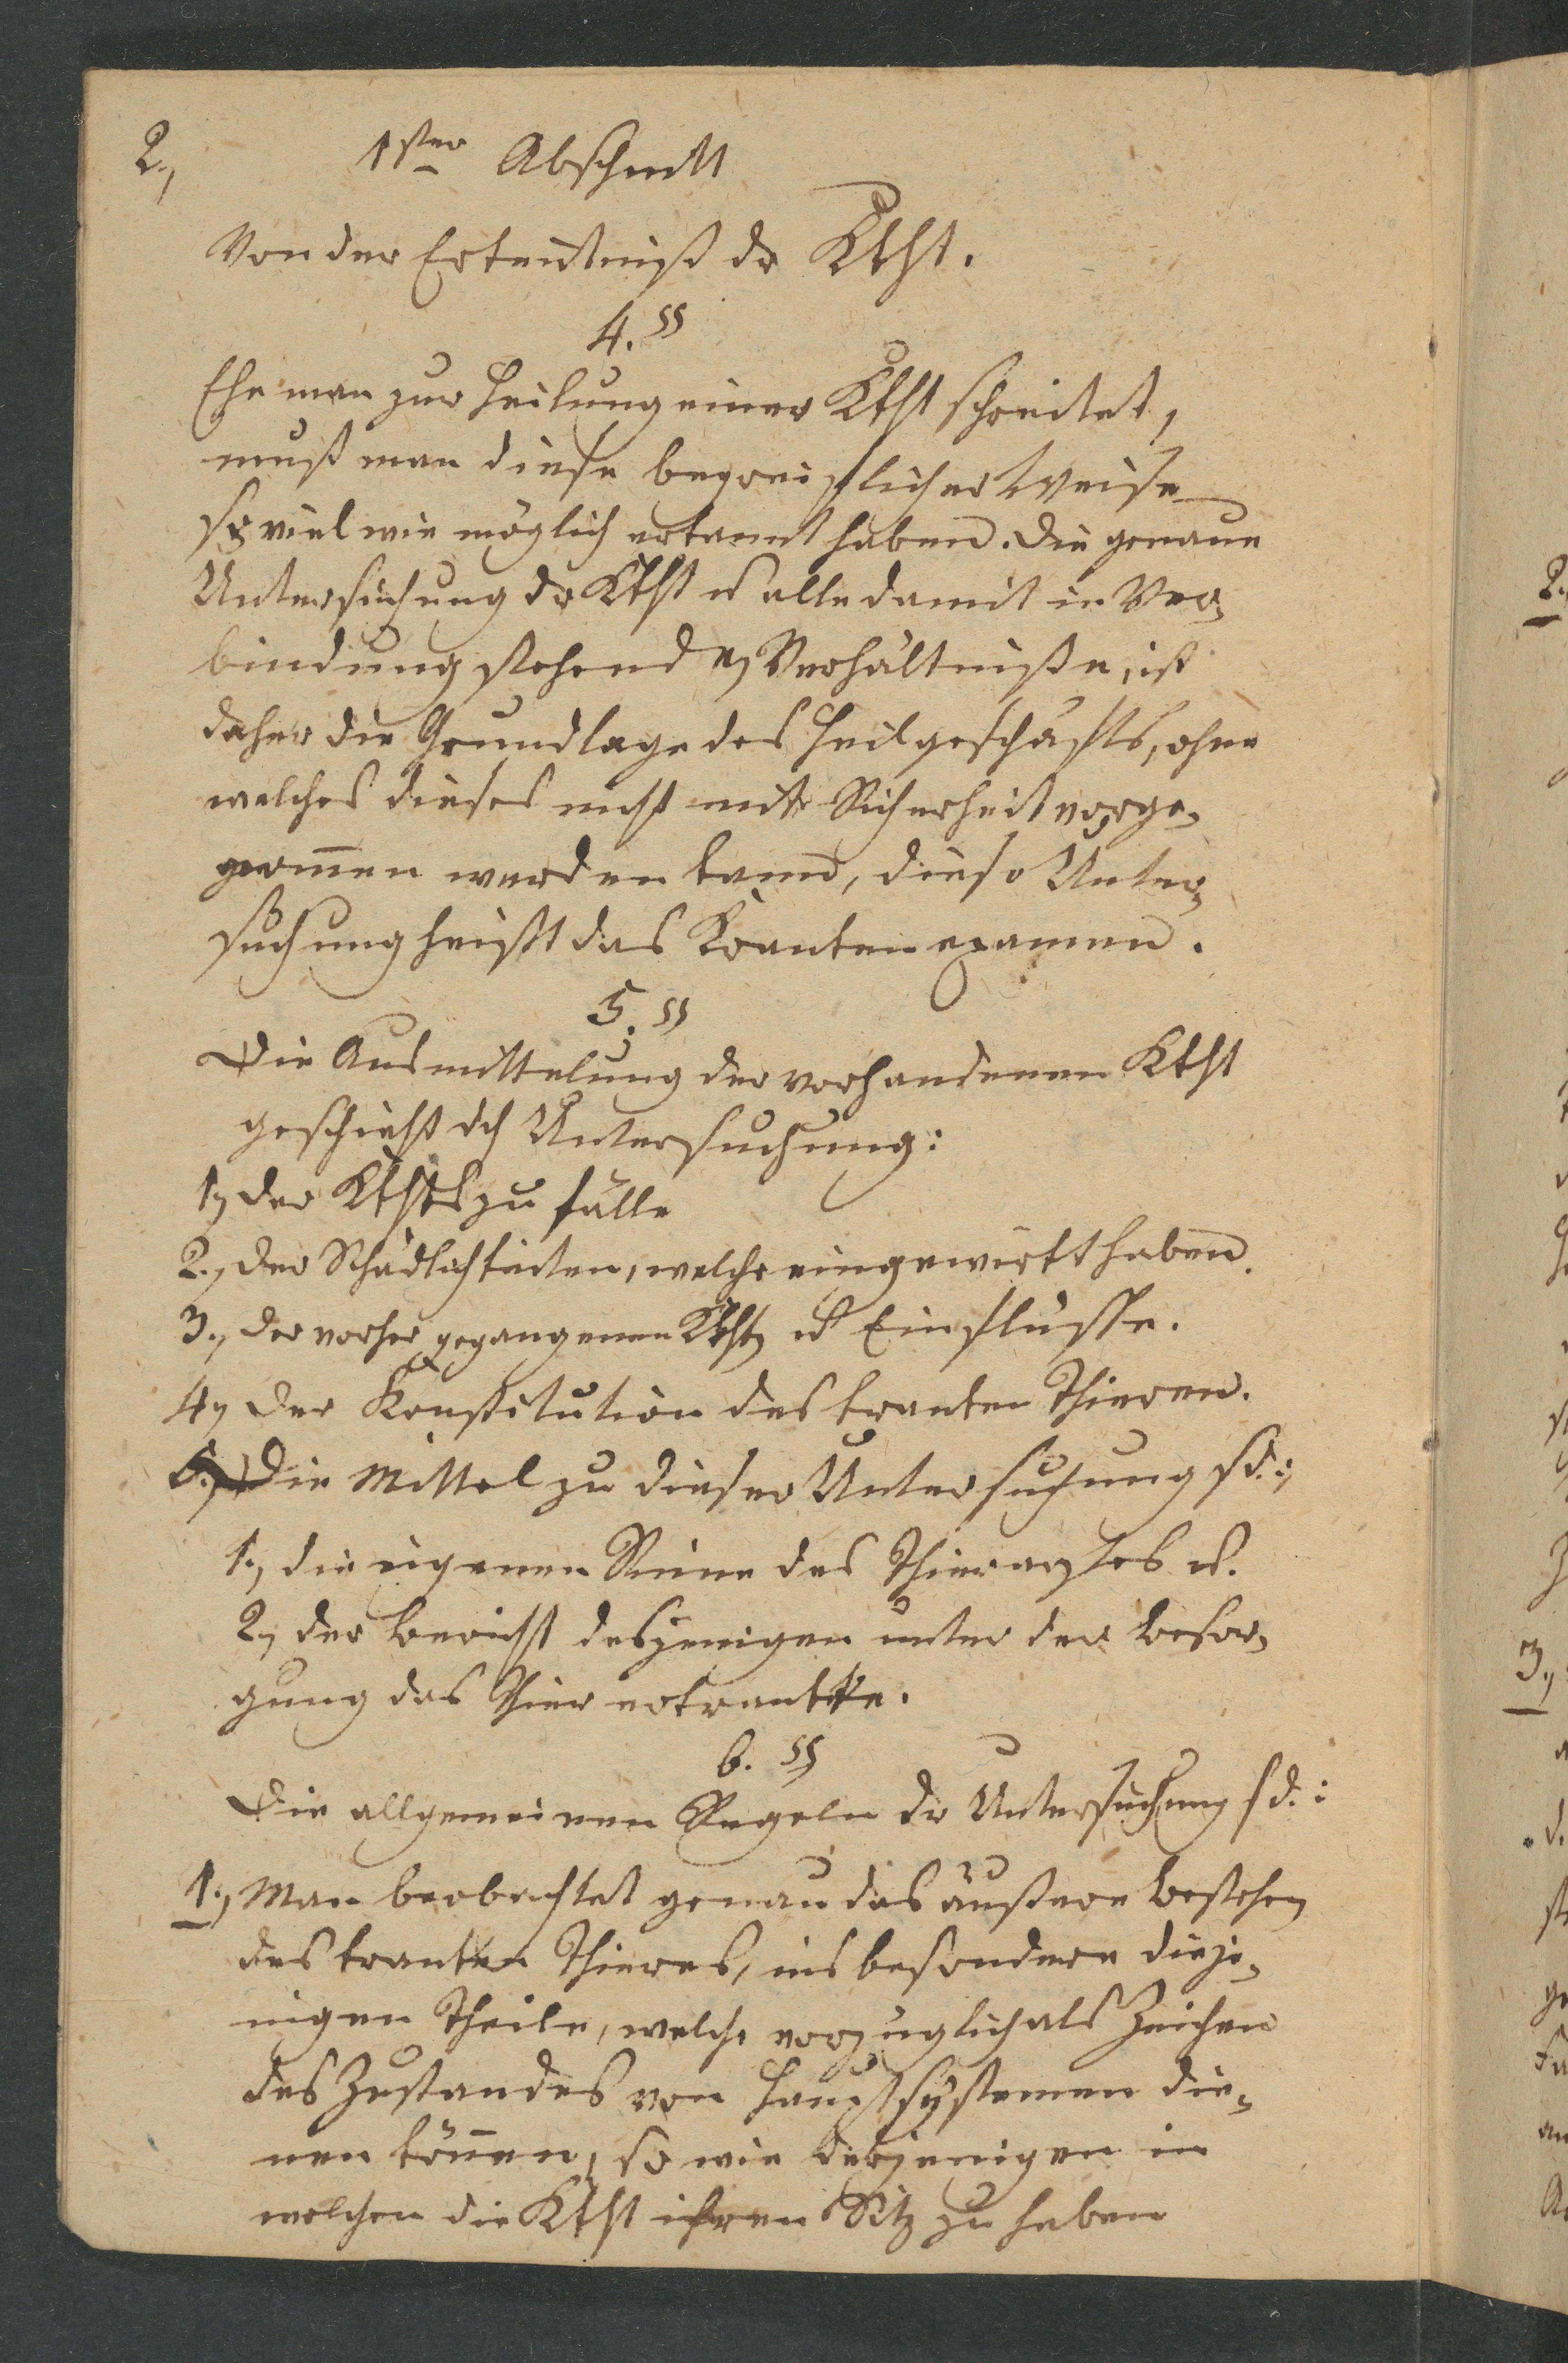 2.,
1ster Abschnitt
Von der Erkentniß dr Kkht.
4. §§
Ehe man zur Heilung einer Kkht schreitet,
muß man diese begreiflicher Weise
so viel wie möglich erkannt haben. Die genaue
Untersuchung dr Kkht u alle damit in Ver-
bindung stehenden Verhältniße, ist
daher die Grundlage des Heilgeschäfts, ohne
welches dieses nicht mit Sicherheit vorge-
nom̅en werden kann, diese Unter-
suchung heißt das Krankenexamen.
5. §§
Die Ausmittelung der vorhandenen Kkht
geschieht dch Untersuchung:
1., der Kkhtszufälle
2., der Schädlichkeiten, welche eingewirkt haben.
3., der vorher gegangenen Kkhtn u Einflüsse.
4., der Konstitution des kranken Thieren.
Die Mittel zu dieser Untersuchung sd.:
1., die eigenen Sinne des Thierarztes u.
2., der Bericht desjenigen unter der Besor-
gung das Thier erkrankte.
6. §§
Die allgemeinen Regeln dr Untersuchung sd.:
1., Man beobachtet genau das äußere Bestehen
des kranken Thieres, ins besondere dieje-
nigen Theile, welche vorzüglich als Zeichen
des Zustandes von Hauptsystemen die-
nen kön̅en, so wie derjenigen in
welchen die Kkht ihren Sitz zu haben